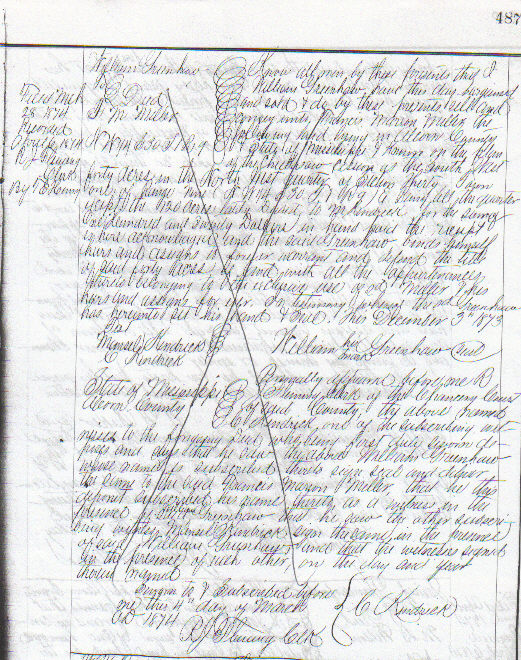 487
William Greenhaw
To } Deed
F. M. Miller
N.W.¼ S 30 T 1 R 9
Filed Mch
28 1874
Recorded
April 1874
R J
Clerk
By
Know all men by these presents that I
William Greenhaw, have this day bargained
and sold & do by these presents sell and
convey unto Francis Marion Miller the
following land lying in Alcorn County
State of Mississippi & known on the plan
of the Chickasaw Cession as the South West
forty acres in the North West quarter of Section Thirty Town
one of range nine
except the two acres sold to M. Kendrick for the sum of
One Hundred and Twenty Dollars in hand paid the receipt of
which is here acknowledged and the said Greenhaw bonds himself
heirs and assigns to forever warrant and defend the title
of said forty acres of land with all the appurtenances
thereto belonging to the exclusive use of sd Miller & his
heirs and assigns for ever. In testimony whereof the sd Greenhaw
has hereunto set his hand & seal this December 3rd 1873
Manuel Kendrick
C Kendrick
William his mark Greenhaw Seal
State of Mississippi
Alcorn County
Personally appeared before me R
J Fleming Clerk of the Chancery Court
of said County, the above named
C Kendrick, one of the subscribing wit-
nesses to the foregoing Deed who being first duly sworn de-
poses and says that he saw the above William Greenhaw
whose name is subscribed thereto sign seal and deliver
the same to the said Francis Marion Miller, that he this
deponent subscribed his name thereto as a witness in the
presence of William Greenhaw and he saw the other subscri-
bing witness Manuel Kendrick sign the same in the presence
of said William Greenhaw and that the witnesses signed
in the presence of each other on the day and year
therein named
Sworn to & Subscribed before
me this 4th day of March
AD 1874
C Kendrick
R J Fleming Clk